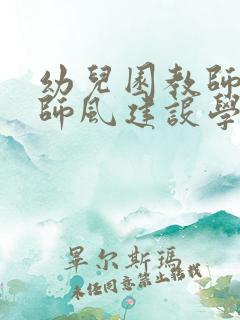 幼兒園教師
師風建設學
畢尔斯瑪
未经同意禁止轉載